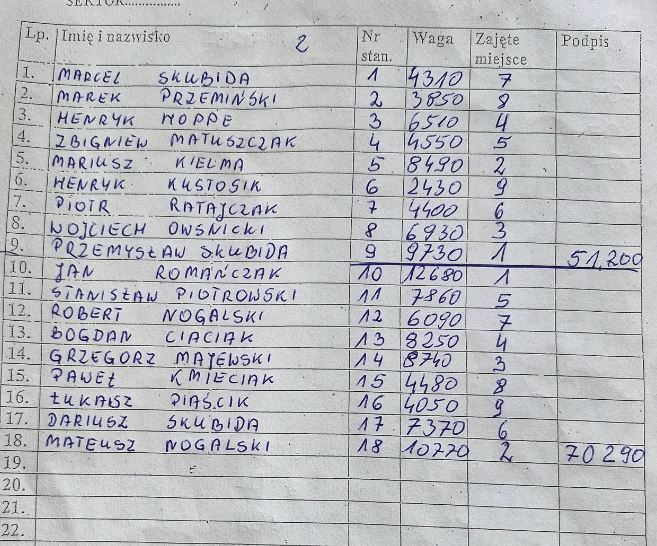 SEKTOR................
Lp. Imię i nazwisko 2 Nr stan. Waga Zajęte miejsce Podpis
1. MARCEL SKUBIDA 1 4310 7
2. MAREK PRZEMIŃSKI 2 3850 8
3. HENRYK HOPPE 3 6510 4
4. ZBIGNIEW MATUSZCZAK 4 4550 5
5. MARIUSZ KIELMA 5 8490 2
6. HENRYK KUSTOSIK 6 2430 9
7. PIOTR RATAJCZAK 7 4400 6
8. WOJCIECH OWSNICKI 8 6930 3
9. PRZEMYSŁAW SKUBIDA 9 9730 1 51,200
10. JAN ROMAŃCZAK 10 12680 1
11. STANISŁAW PIOTROWSKI 11 7860 5
12. ROBERT NOGALSKI 12 6090 7
13. BOGDAN CIACIAK 13 8250 4
14. GRZEGORZ MAJEWSKI 14 8740 3
15. PAWEŁ KMIECIAK 15 4480 8
16. ŁUKASZ PIAŚCIK 16 4050 9
17. DARIUSZ SKUBIDA 17 7370 6
18. MATEUSZ NOGALSKI 18 10770 2 70290
19.
20.
21.
22.